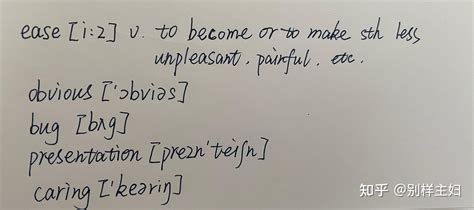 ease [i:z] v. to become or to make sth less
unpleasant. painful. etc.
obvious ['ɔbviəs]
bug [bʌg]
presentation [prezn'teiʃn]
caring ['keəriŋ]
知乎 @别样主妇